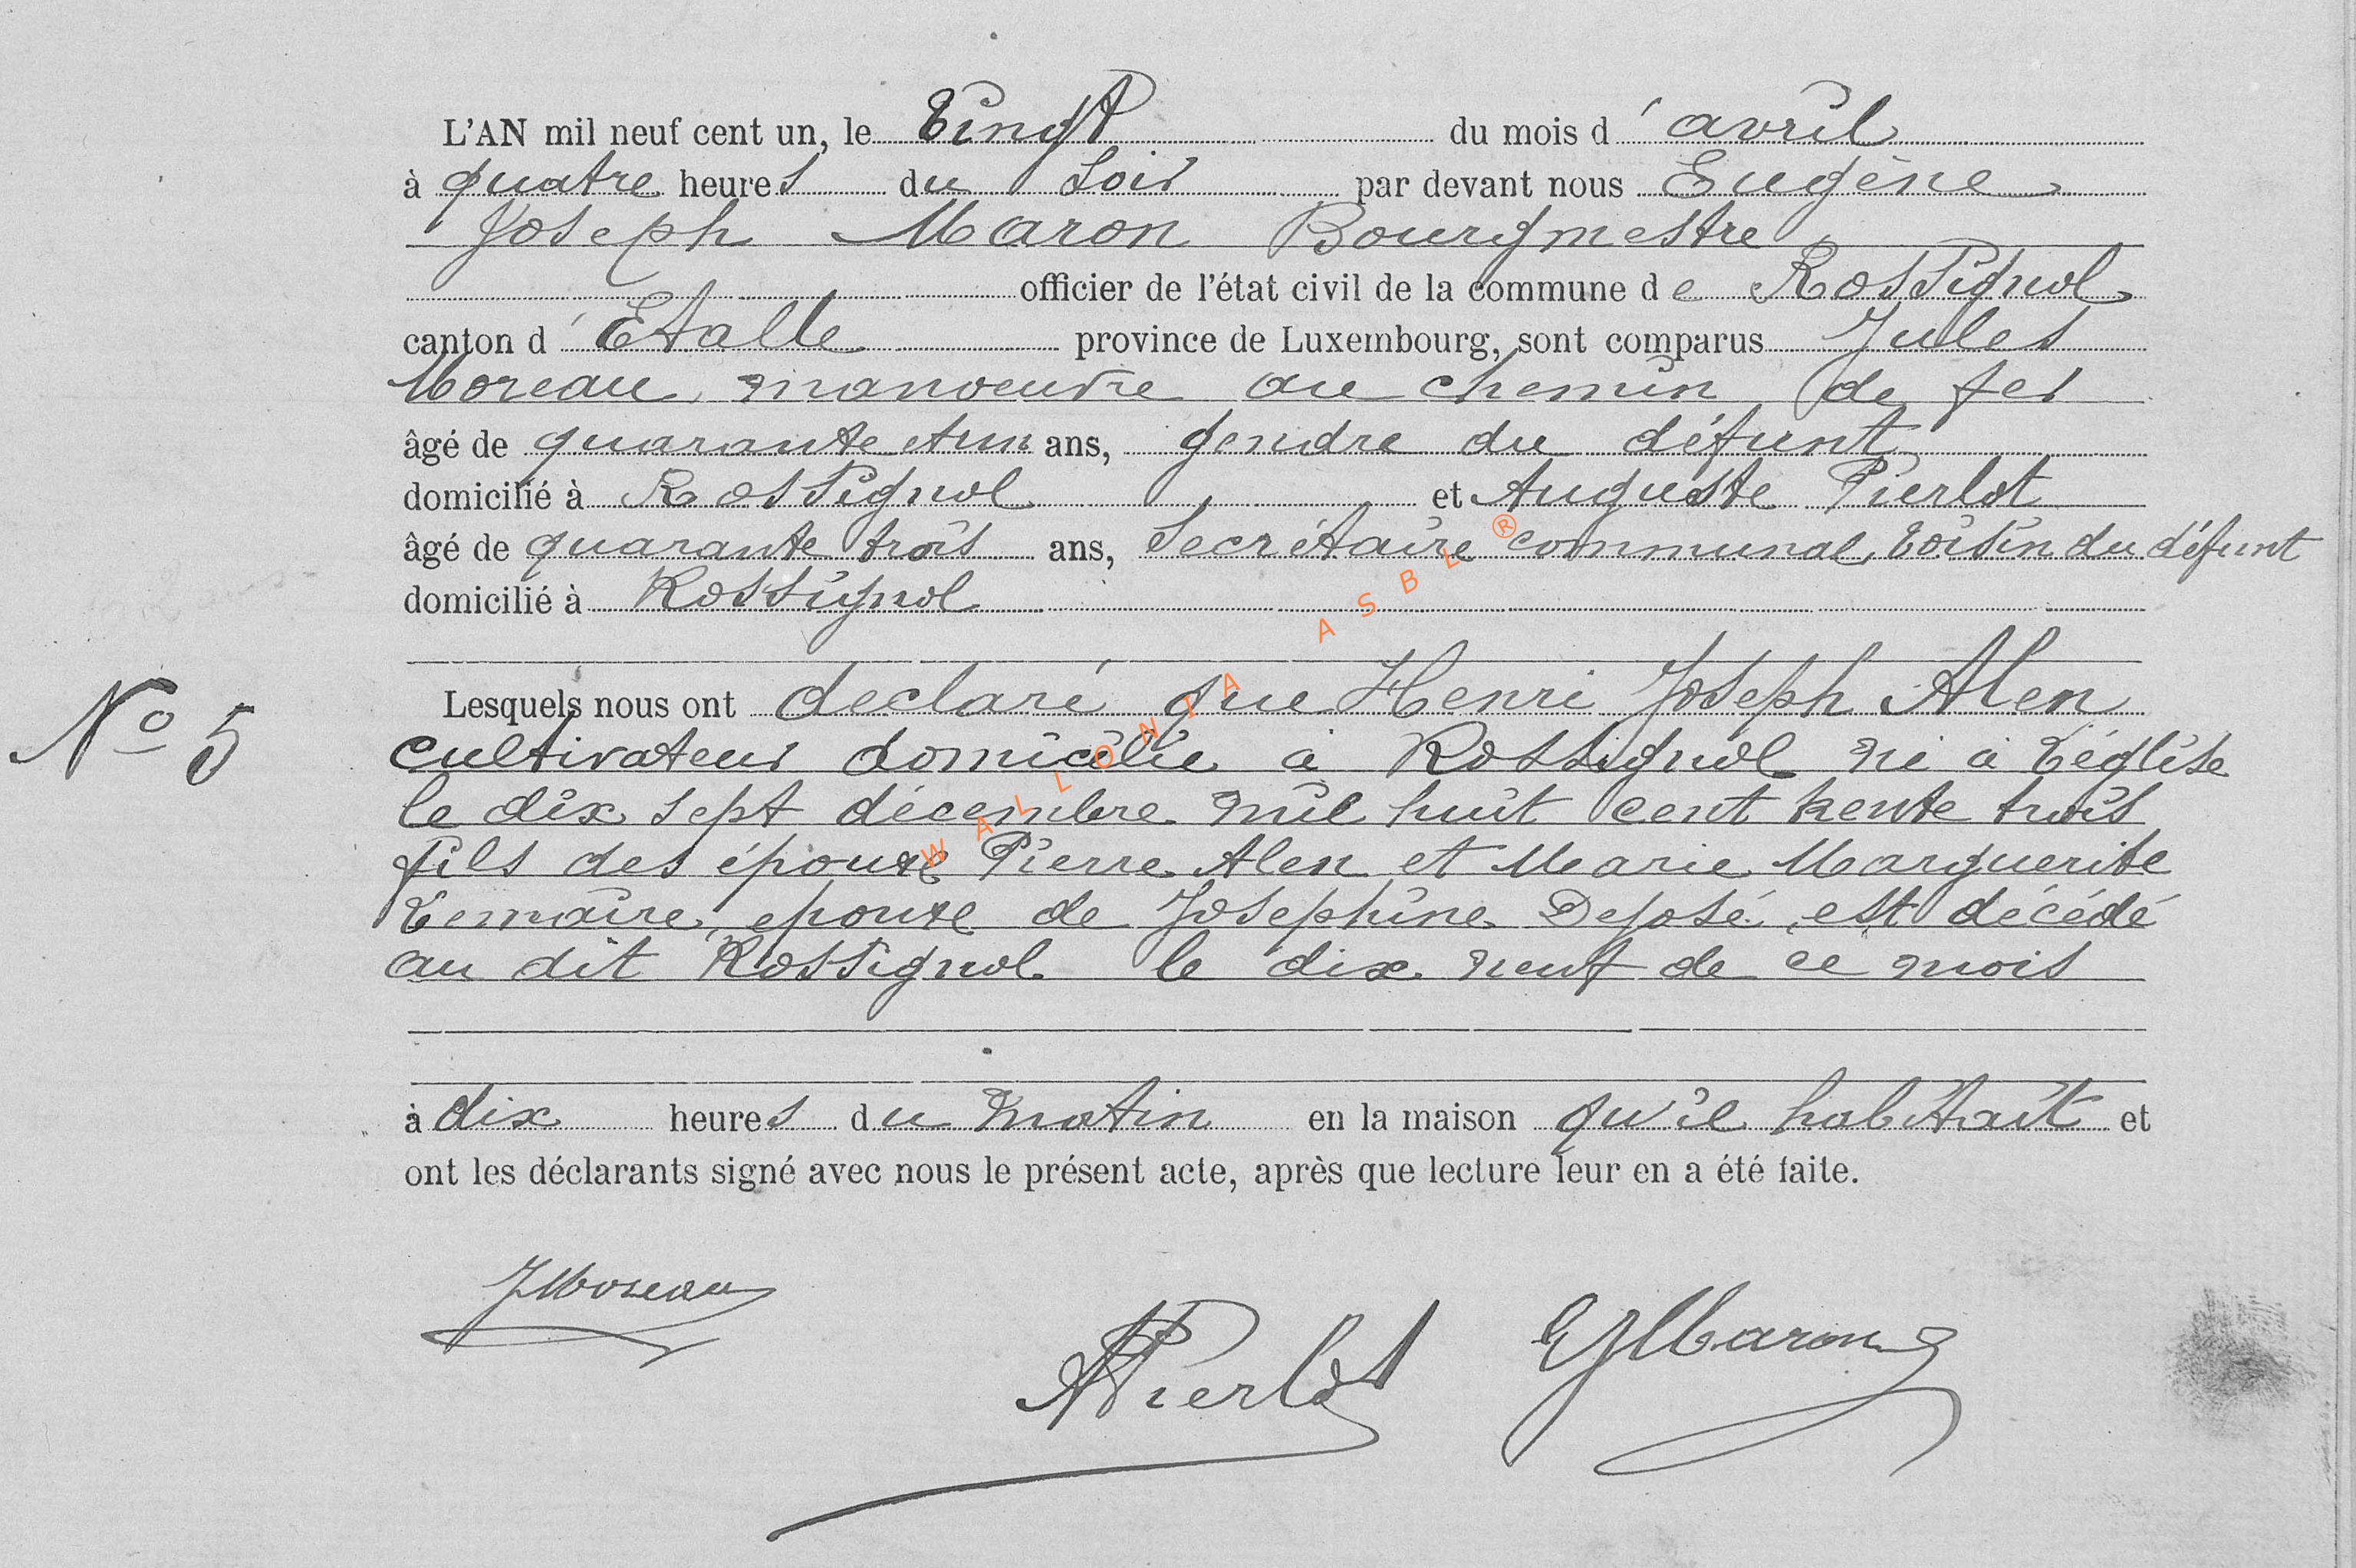 L'AN mil neuf cent un, le Vingt du mois d'avril
à quatre heures du soir par devant nous Eugène
Joseph Maron Bourgmestre
officier de l'état civil de la commune de Rossignol
canton d'Etalle province de Luxembourg, sont comparus Jules
Moreau, manoeuvre au chemin de fer
âgé de quarante et un ans, gendre du défunt
domicilié à Rossignol et Auguste Pierlot
âgé de quarante trois ans, Secrétaire communal, voisin du défunt
domicilié à Rossignol
Lesquels nous ont declaré que Henri Joseph Alen
N° 5
cultivateur domicilié à Rossignol né à Léglise
le dix sept décembre mil huit cent trente trois
fils des époux Pierre Alen et Marie Marguerite
Lemaire, epoux de Josephine Deposé, est décédé
au dit Rossignol le dix neuf de ce mois
à dix heures du matin en la maison qu'il habitait et
ont les déclarants signé avec nous le présent acte, après que lecture leur en a été faite.
JMoreau
APierlot
EJMaron
WALLONIA ASBL ®